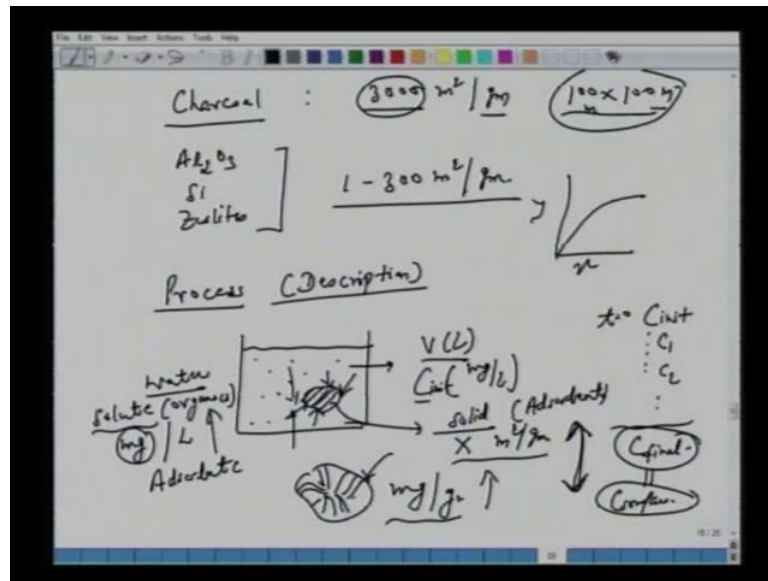 File Edit View Insert Actions Tools Help
Charcoal : 3000 m²/gm 100 x 100 m²
Al₂O₃
Si
Zeolites
1 - 300 m²/gm
y
x
Process (Description)
t=0 Cinit
C₁
C₂
water
solute (organics)
mg/L
Adsorbate
V(L)
Cinit (mg/L)
solid (Adsorbents)
X m²/gm
mg/gr
Cfinal
19/20
19